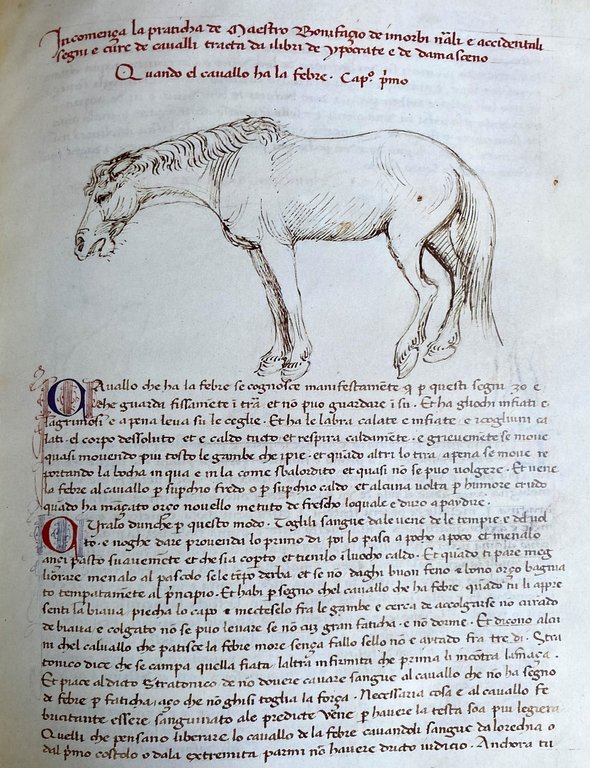 Incomença la praticha de Maestro Bonifazio de imorbi nãli e accidentali
segni e cure de cavalli tracta da ilibri de ypocrate e de damasceno
Quando el cavallo ha la febre. Cap.º p̃mo
Cavallo che ha la febre se cognosce manifestamẽte p questi segni zo e
che guardi fissamẽte ĩ trã et nõ puo guardare ĩ su. Et ha gliochi infiati e
lagrimosi e apena leva su le ceglie. Et ha le labra calate e infiate e icogliuni ca
lati. el corpo dessoluto et e caldo tucto et respira caldamẽte. e grievemẽte se move
quasi movendo piu tosto le gambe che ipie. et quãdo altri lo tira apena se move re
portando la bocha in qua e in la come sbalordito et quasi nõ se puo volgere. Et vene
la febre al cavallo p supchio fredo o p supchio caldo et alcuna volta p humore crudo
quãdo ha mãcato orço novello metuto de frescho loquale e duro a paydire.
Curalo dunche p questo modo. Toglili sangue da le vene de le tempie e del vol
to. e noghe dare provenda lo primo di poi lo pasci a pocho a poco et menalo
anci pasto suavemẽte et che sia copto et tienilo ĩ luocho caldo. Et quãdo ti pare meg
liorare menalo al pascolo se le tẽpo derba et se nõ daghi buon feno e bono orço bagnia
to tempatamẽte al p̃ncipio. Et habi p segno chel cavallo che ha febre quãdo tu li appre
senti la biava piecha lo capo e mecteselo fra le gambe e cerca de accolgierse nõ curãdo
de biava e colgato nõ se puo levare se nõ cũ gran faticha. e nõ dorme. Et dicono alcu
ni chel cavallo che patisce la febre more sença fallo sello nõ e aytado fra tre di. Stra
tonico dice che se campa quella fiata laltra infirmita che prima li incõtra lamaça.
Et piace al dicto Stratonico de nõ dovere cavare sangue al cavallo che nõ ha segno
de febre p faticha aço che nõ ghisi toglia la força. Necessaria cosa e al cavallo fe
bricitante essere sanguinato ale predicte vene p havere la testa soa piu legiera
Quelli che pensano liberare lo cavallo de la febre cavandoli sangue da lorechia o
dal p̃mo costolo o dala extremita parmi nõ havere dricto iudicio. Anchora tu